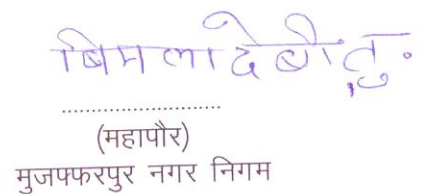 बिमला देवी तु॰
........................
(महापौर)
मुजफ्फरपुर नगर निगम